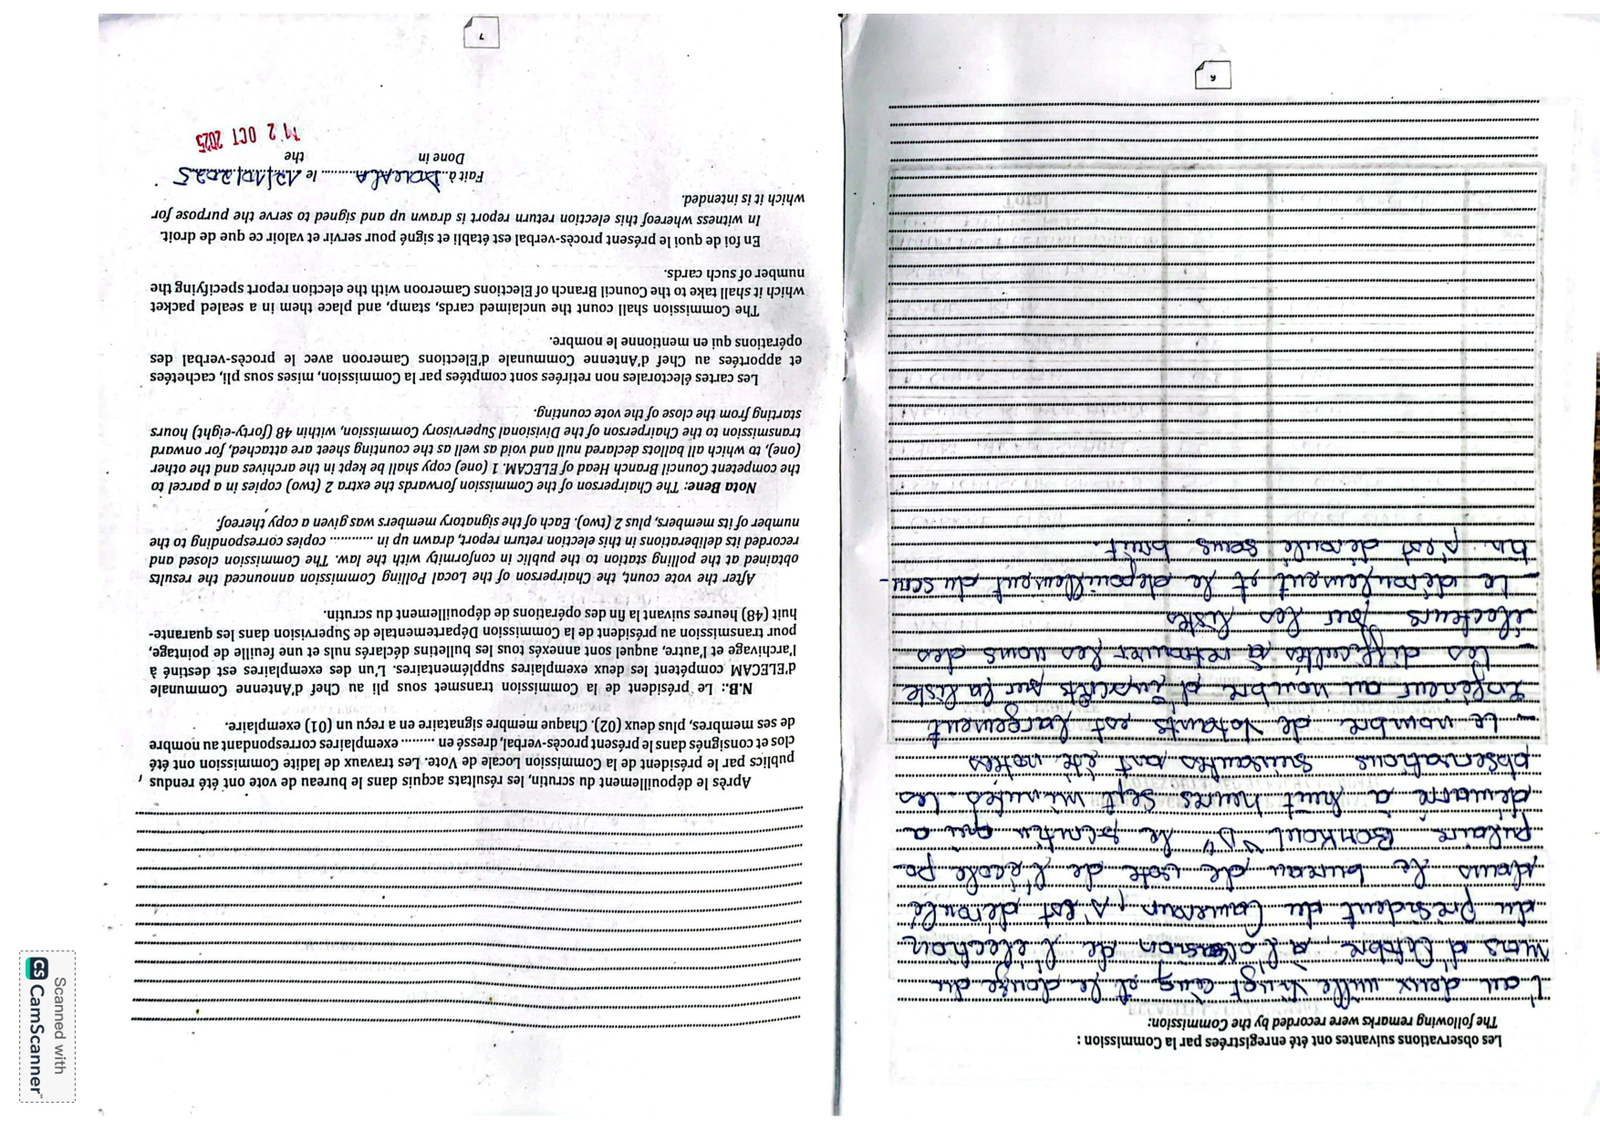 Les observations suivantes ont été enregistrées par la Commission :
The following remarks were recorded by the Commission:
L'an deux mille vingt cinq et le douze du
mois d'Octobre, à l'occasion de l'élection
du president du Cameroun, s'est déroulé
dans le bureau de vote de l'école po-
pulaire Bonkoul "D" le scrutin qui a
démarré à huit heures sept minutes. Les
observations suivantes ont été notées
- Le nombre de votants est largement
inférieur au nombre d'inscrits sur la liste
- Les difficultés à retrouver les noms des
électeurs sur les listes
- Le déroulement et le depouillement du scru-
tin s'est déroulé sans bruit.
6
Après le dépouillement du scrutin, les résultats acquis dans le bureau de vote ont été rendus
publics par le président de la Commission Locale de Vote. Les travaux de ladite Commission ont été
clos et consignés dans le présent procès-verbal, dressé en ......... exemplaires correspondant au nombre
de ses membres, plus deux (02). Chaque membre signataire en a reçu un (01) exemplaire.
N.B.: Le président de la Commission transmet sous pli au Chef d'Antenne Communale
d'ELECAM compétent les deux exemplaires supplémentaires. L'un des exemplaires est destiné à
l'archivage et l'autre, auquel sont annexés tous les bulletins déclarés nuls et une feuille de pointage,
pour transmission au président de la Commission Départementale de Supervision dans les quarante-
huit (48) heures suivant la fin des opérations de dépouillement du scrutin.
After the vote count, the Chairperson of the Local Polling Commission announced the results
obtained at the polling station to the public in conformity with the law. The Commission closed and
recorded its deliberations in this election return report, drawn up in ............ copies corresponding to the
number of its members, plus 2 (two). Each of the signatory members was given a copy thereof.
Nota Bene: The Chairperson of the Commission forwards the extra 2 (two) copies in a parcel to
the competent Council Branch Head of ELECAM. 1 (one) copy shall be kept in the archives and the other
(one), to which all ballots declared null and void as well as the counting sheet are attached, for onward
transmission to the Chairperson of the Divisional Supervisory Commission, within 48 (forty-eight) hours
starting from the close of the vote counting.
Les cartes électorales non retirées sont comptées par la Commission, mises sous pli, cachetées
et apportées au Chef d'Antenne Communale d'Elections Cameroon avec le procès-verbal des
opérations qui en mentionne le nombre.
The Commission shall count the unclaimed cards, stamp, and place them in a sealed packet
which it shall take to the Council Branch of Elections Cameroon with the election report specifying the
number of such cards.
En foi de quoi le présent procès-verbal est établi et signé pour servir et valoir ce que de droit.
In witness whereof this election return report is drawn up and signed to serve the purpose for
which it is intended.
Fait à Douala le 12/10/2025
Done in the
12 OCT 2025
7
Scanned with
CS CamScanner